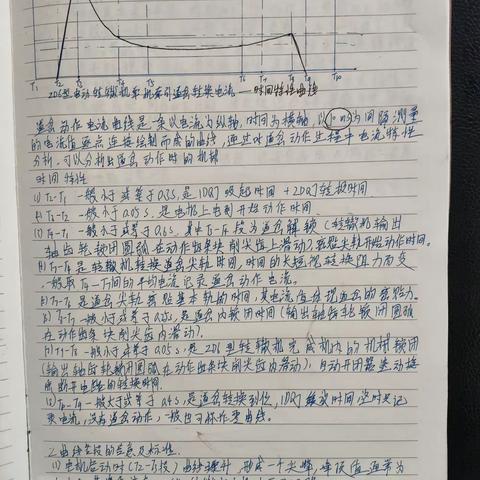 T1 T2 T3 T4 T5 T6 T7 T8 T9 T10
ZD6型电动转辙机单机牵引道岔转换电流——时间特性曲线
道岔动作电流曲线是一条以电流为纵轴,时间为横轴,以 ms为间隔测量
的电流值逐点连接绘制而成的曲线,通过对道岔动作过程中电流特性
分析,可以分析出道岔动作时的机械
时间特性
(1) T2-T1 一般小于或等于0.3S,是1DQJ吸起时间+2DQJ转极时间
T3-T2 一般小于或等于0.05S,是电机上电到开始动作时间
一般小于或等于0.6S,其中 段为道岔解锁(转辙机输出
轴齿轮锁闭圆弧在动作齿条块削尖齿上滑动)至密贴尖轨开始动作时间。
是转辙机转换道岔尖轨时间,时间的长短视转换阻力而变
一般取 间的平均电流记录道岔动作电流。
是道岔尖轨密贴基本轨的时间,其电流值体现道岔的密贴力。
一般小于或等于 是道岔内锁闭时间(输出轴齿轮锁闭圆弧
在动作齿条块削尖齿内滑动)。
一般小于或等于0.05S,是ZD6型转辙机完成机内的机械锁闭
(输出轴齿轮锁闭圆弧在动作齿条块削尖齿内滑动),自动开闭器速动接
点断开电路的转换时间。
一般大于或等于0.4S,是道岔转换到位,1DQJ缓放时间,此时只记
录电流,没有道岔动作,一般也可称作零曲线。
2.曲线各段的含意及标准.
(1) 电机启动时(T2-T3段)曲线骤升,形成一个尖峰,峰顶值通常为